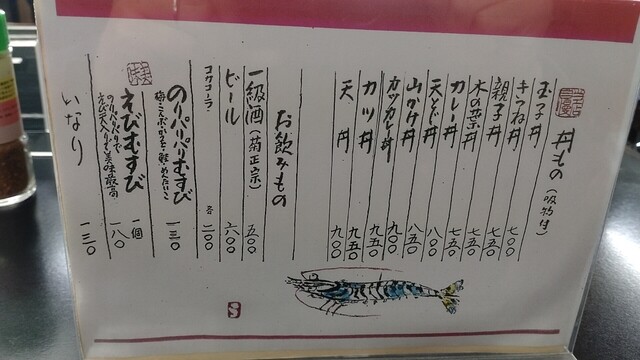 丼もの（吸物付）
玉子丼 七〇〇
きつね丼 七五〇
親子丼 七五〇
木の葉丼 七五〇
カレー丼 八〇〇
天とじ丼 八五〇
山かけ丼 九〇〇
カツカレー丼 九五〇
カツ丼 九五〇
天丼 九〇〇
お飲みもの
一級酒（菊正宗） 五〇〇
ビール 六〇〇
コカコーラ 各 二〇〇
のりパリパリむすび 一三〇
えびむすび 一個 一八〇
いなり 一三〇